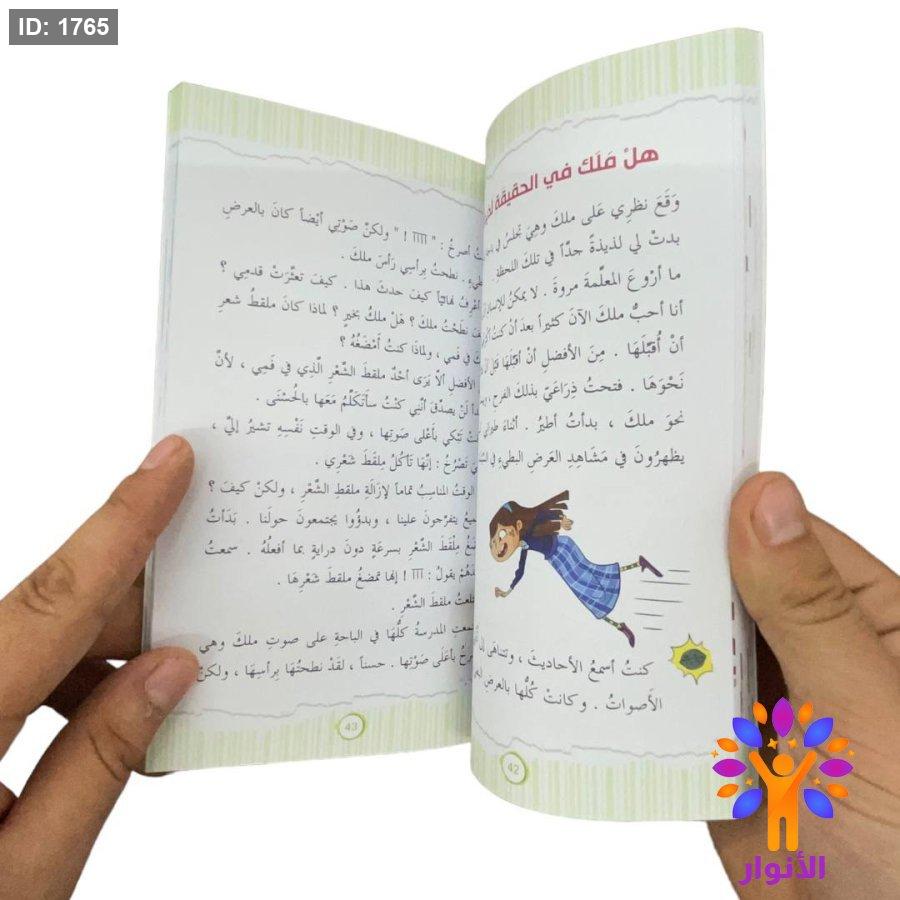 ID: 1765
هلْ مَلَك في الحقيقة
وَقَعَ نظرِي عَلى ملكَ وهِيَ تجلسُ في
بدتْ لي لذيذةً جدّاً في تلكَ اللحظةِ
ما أرْوعَ المعلّمة مروةَ . لا يمكنُ للإنسانِ
أنا أحبُّ ملكَ الآنَ كثيراً بعدَ أنْ كنتُ
أنْ أُقبّلَهَا . مِنَ الأفضلِ أنْ أقبّلَهَا قبْل
نَحْوَهَا . فتحتُ ذِرَاعَيّ بذلكَ الفرحِ
نحوَ ملكَ ، بدأتُ أطيرُ . أثناءَ
يظهرُونَ في مَشَاهِدِ العَرضِ البطيءِ في
كنتُ أسمعُ الأحاديثَ ، وتتناهَى
الأَصواتُ . وكانتْ كُلُّها بالعرضِ
42
أصرخُ : " آآآآ ! " ولكنْ صَوْتِي أيْضاً كانَ بالعرضِ
. نطحتُ برأسِي رَأسَ ملكَ .
نهائيّاً كيفَ حدثَ هذا . كيفَ تعثّرَتْ قدمِي ؟
نَطَحْتُ ملكَ ؟ هَلْ ملكُ بخيرٍ ؟ لماذَا كانَ ملقطُ شعرِ
في فمِي ، ولماذَا كنتُ أَمْضُغُهُ ؟
الأفضلِ ألاّ يَرَى أحَدٌ ملقطَ الشَّعْرِ الّذِي في فَمِي ، لأنّ
لَنْ يصدّقَ أنّنِي كنْتُ سأتَكَلّمُ مَعَها بِالْحُسْنَى .
تَبْكِي بأعْلى صَوتِها ، وفي الوقتِ نَفْسِهِ تشيرُ إليَّ ،
تَصْرُخُ : إنّهَا تَأكُلُ مِلقَطَ شَعْرِي .
الوقتُ المناسِبُ تماماً لإزَالةِ ملقطِ الشَّعْرِ ، ولكنْ كيفَ ؟
يتفرّجونَ علينا ، وبدؤُوا يجتمعونَ حولَنا . بَدَأتُ
مِلْقَطَ الشّعْرِ بسرعَةٍ دونَ درايةٍ بما أفعلُهُ . سمعتُ
يقولُ : آآآ ! إنها تمضغُ ملقطَ شَعْرِهَا .
ملقطَ الشّعْرِ .
المدرسةُ كلُّهَا في الباحةِ على صوتِ ملكَ وهي
بأعَلَى صَوْتِها . حسناً ، لقَدْ نطحتُهَا بِرأسِهَا ، ولكنْ
43
الأنوار